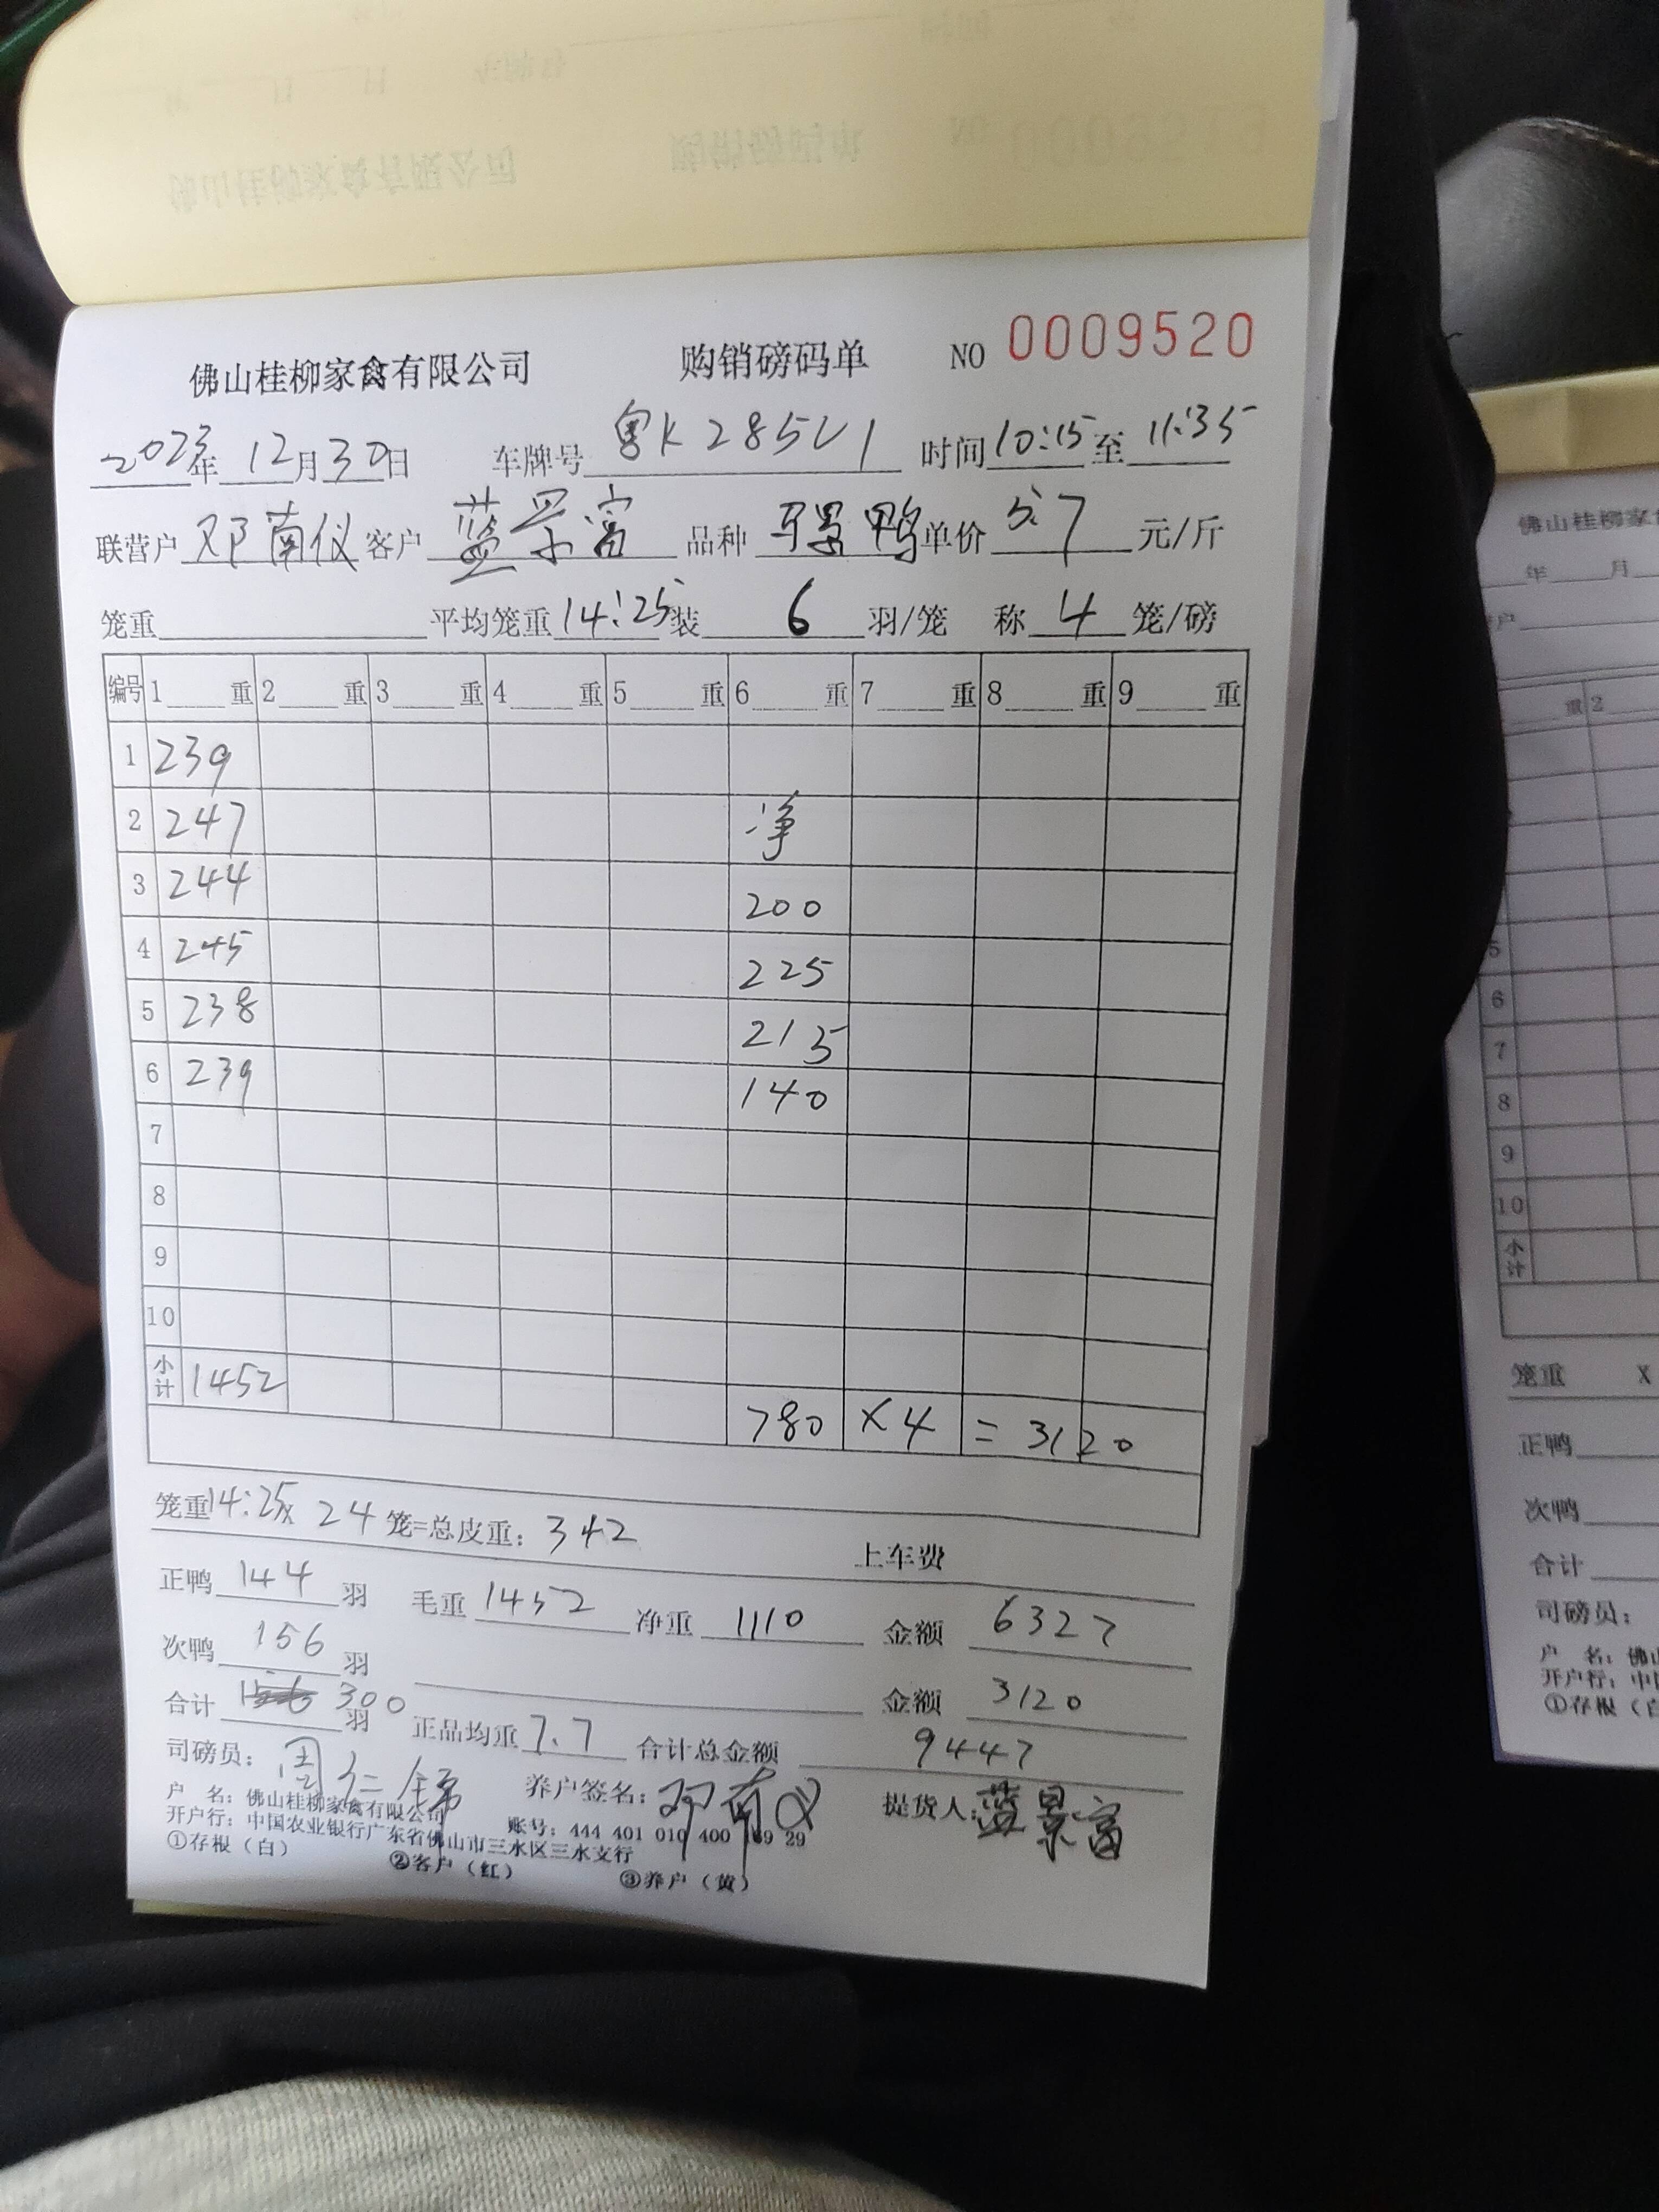 佛山桂柳家禽有限公司 购销磅码单 NO 0009520
2023年 12月30日 车牌号 粤K285V1 时间10:15至11:35
联营户 邓南仪 客户 蓝景富 品种 鸭 单价 5.7 元/斤
笼重 平均笼重14.25装 6 羽/笼 称 4 笼/磅
编号 1 重 2 重 3 重 4 重 5 重 6 重 7 重 8 重 9 重
1 239
2 247 净
3 244 200
4 245 225
5 238 215
6 239 140
7
8
9
10
小计 1452
780 ×4 = 3120
笼重14.25x 24 笼=总皮重: 342
上车费
正鸭 144 羽 毛重 1452 净重 1110 金额 6327
次鸭 156 羽
合计 300 羽 金额 3120
正品均重 7.7 合计总金额 9447
司磅员: 周 养户签名: 邓南仪 提货人: 蓝景富
户 名: 佛山桂柳家禽有限公司
开户行: 中国农业银行广东省佛山市三水区三水支行 账号: 444 401 010 400 29
①存根(白) ②客户(红) ③养户(黄)
佛山桂柳家
年 月
户
重 2
5
6
7
8
9
10
小计
笼重 X
正鸭
次鸭
合计
司磅员:
户 名: 佛山
开户行: 中国
①存根(白